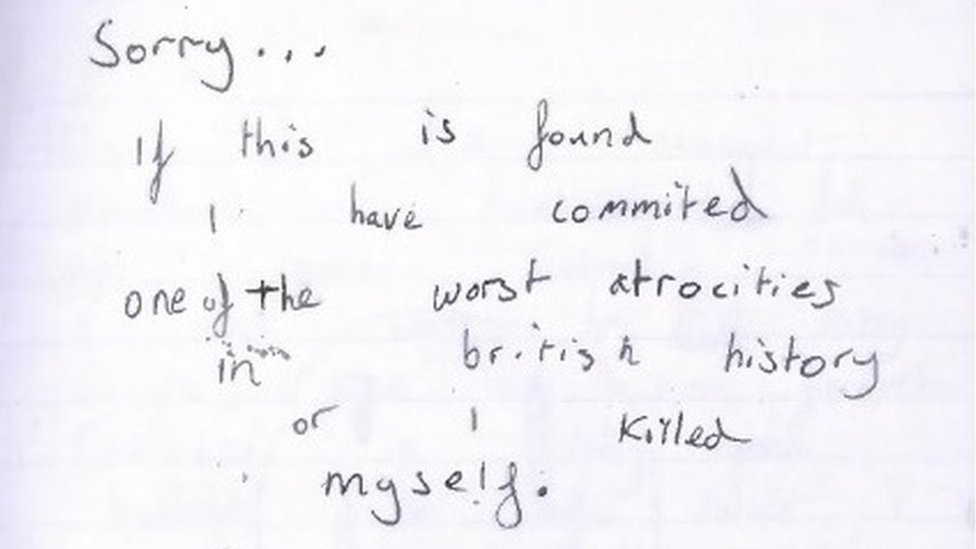 Sorry...
If this is found
I have commited
one of the worst atrocities
in british history
or I killed
myself.